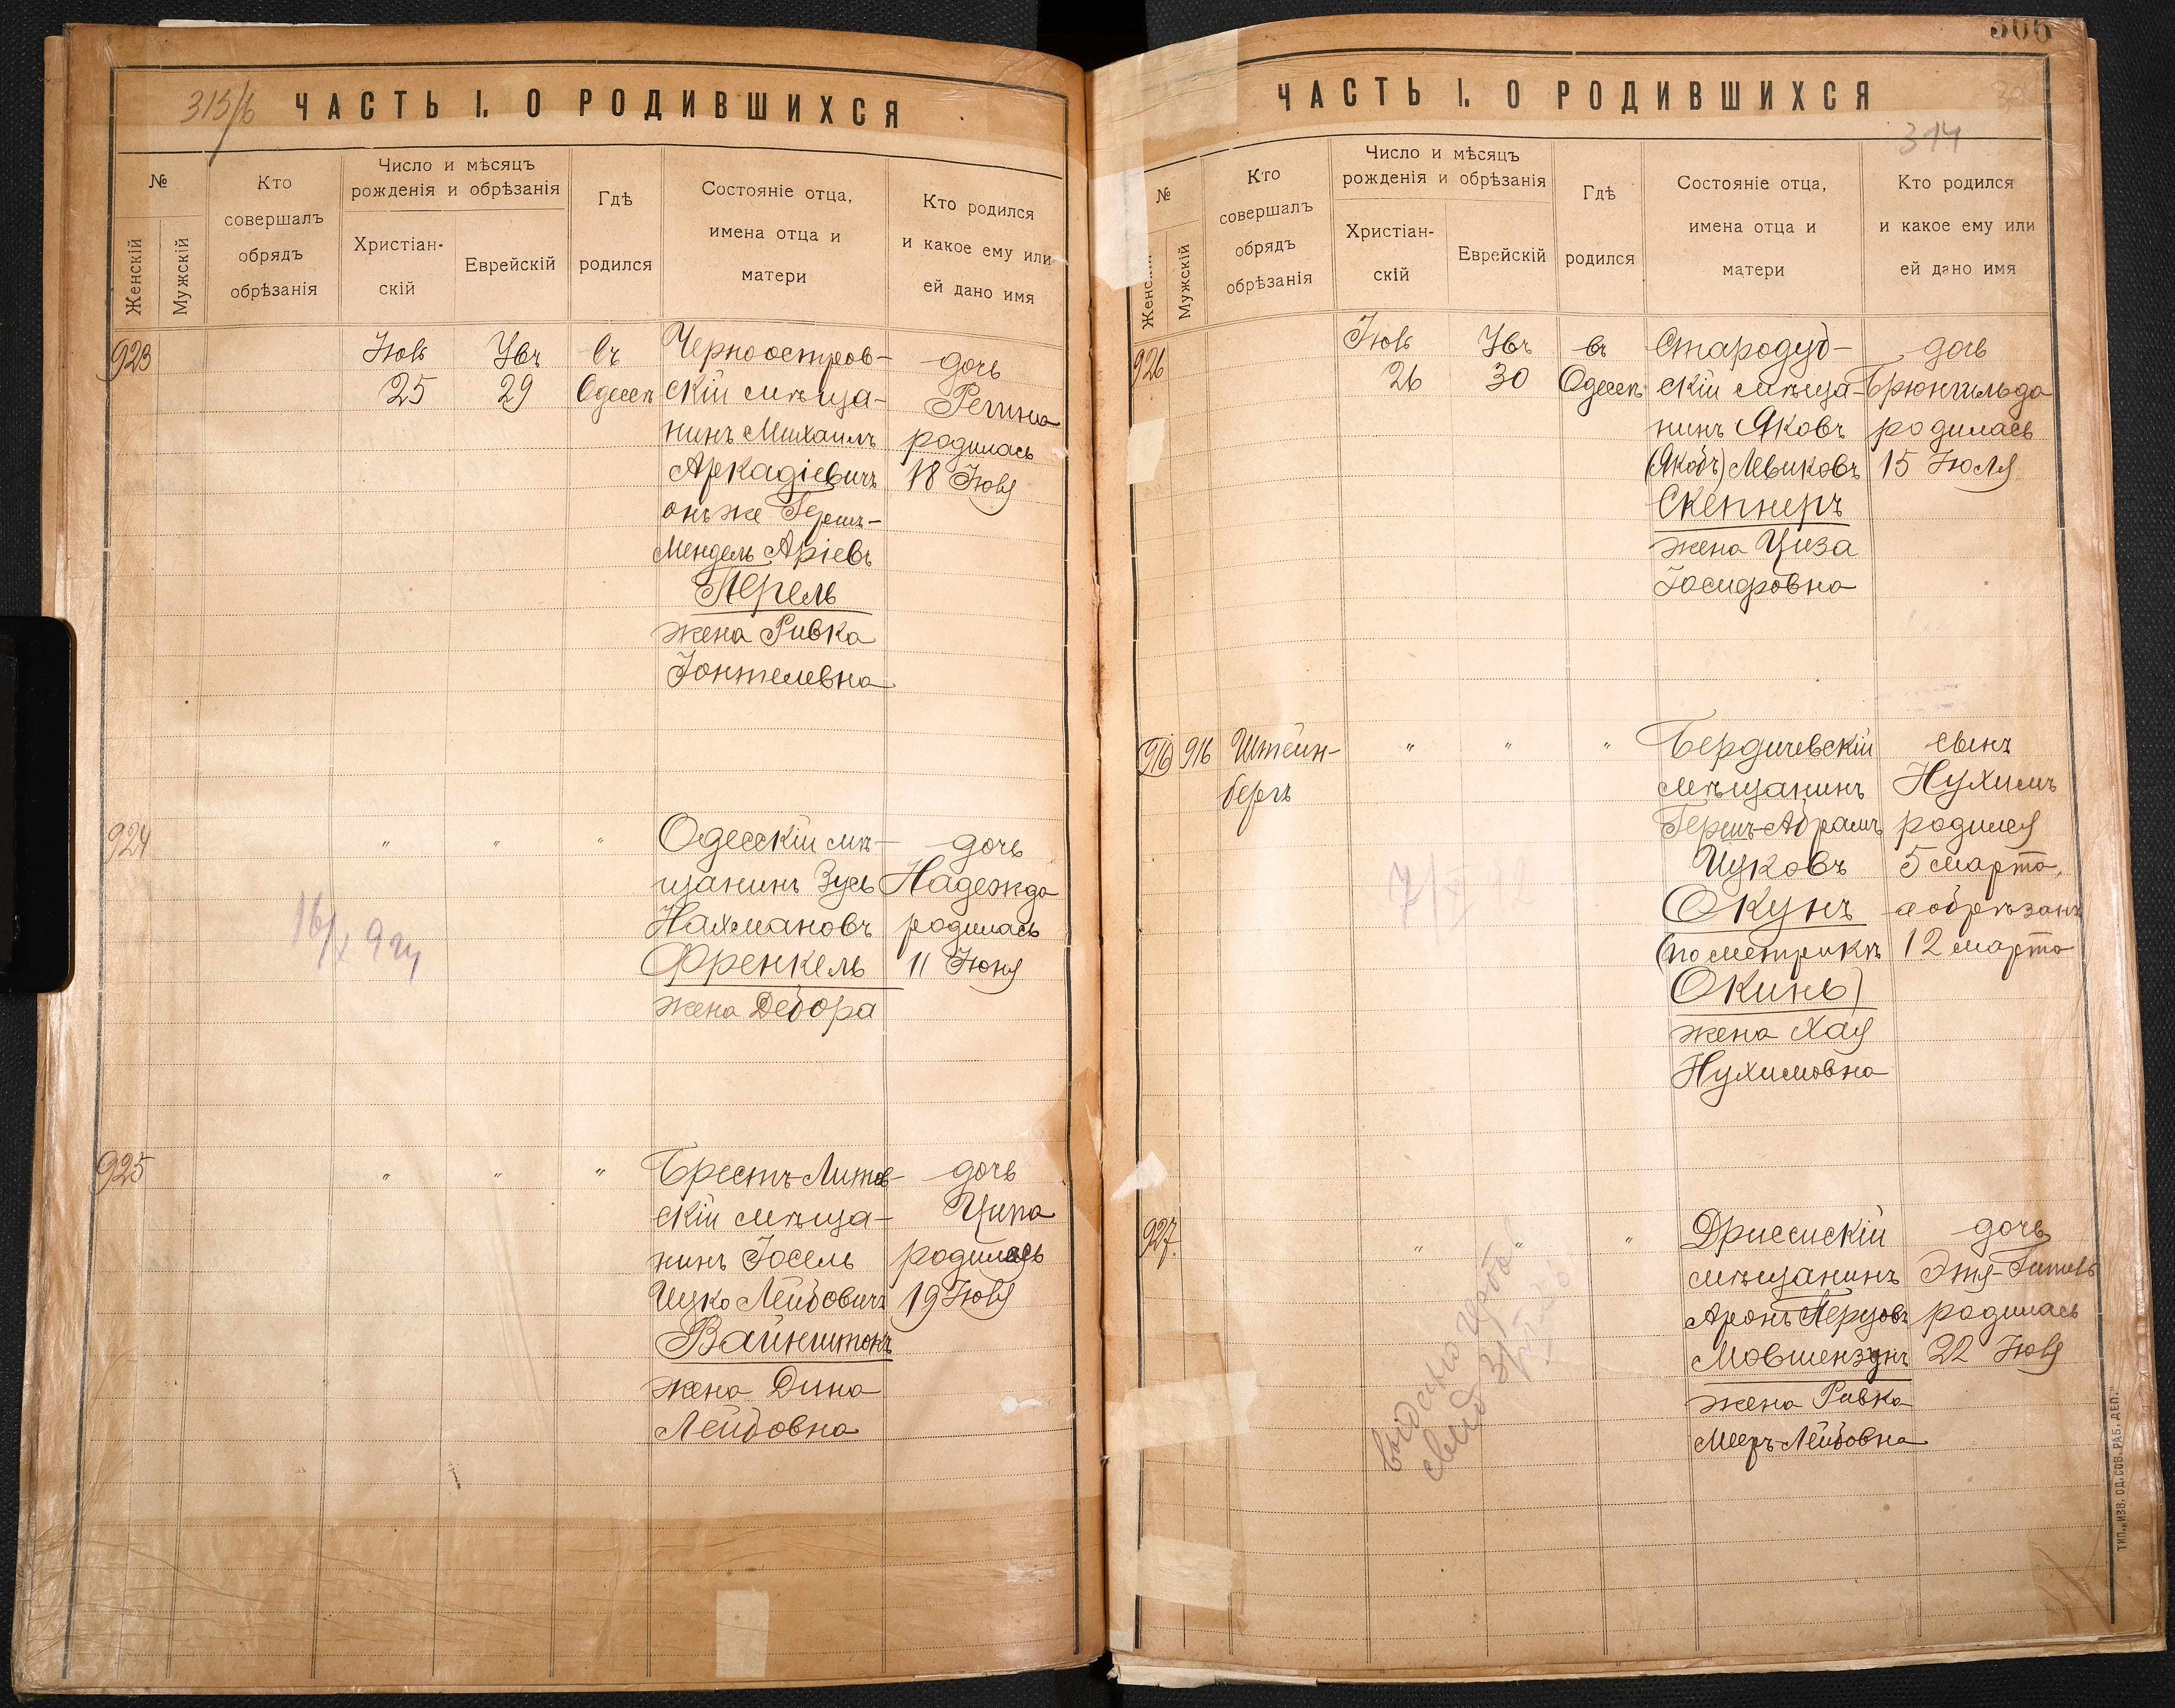 313/б
ЧАСТЬ I. О РОДИВШИХСЯ
№
Женскій
Мужскій
Кто
совершалъ
обрядъ
обрѣзанія
Число и мѣсяцъ
рожденія и обрѣзанія
Христіан-
скій
Еврейскій
Гдѣ
родился
Состояніе отца,
имена отца и
матери
Кто родился
и какое ему или
ей дано имя
923
25
29
въ
Одессѣ
Черноостров-
скій мѣща-
нинъ Михаилъ
Аркадіевичъ
онъ же Герш-
Мендель Аріевъ
Перель
жена Ривка
Іонтелевна
дочь
Регина
родилась
18 Іюля
924
" " "
16/X 9 2
Одесскій мѣ-
щанинъ Зусь
Нахмановъ
Френкель
жена Дебора
дочь
Надежда
родилась
11 Іюня
925
" " "
Брестъ-Литов-
скій мѣща-
нинъ Іосель
Ицко Лейбовичъ
Вайнштокъ
жена Дина
Лейбовна
дочь
Ципа
родилась
19 Іюля
306
314
ЧАСТЬ I. О РОДИВШИХСЯ
№
Женскій
Мужскій
Кто
совершалъ
обрядъ
обрѣзанія
Число и мѣсяцъ
рожденія и обрѣзанія
Христіан-
скій
Еврейскій
Гдѣ
родился
Состояніе отца,
имена отца и
матери
Кто родился
и какое ему или
ей дано имя
926
26
30
въ
Одессѣ
Стародуб-
скій мѣща-
нинъ Яковъ
(Якобъ) Левиковъ
Скепнеръ
жена Циза
Іосифовна
дочь
Брюнгильда
родилась
15 Іюля
916 916
Штейн-
бергъ
" " "
Бердичевскій
мѣщанинъ
Гершъ-Абрамъ
Ицковъ
Окунь
(по метрикѣ
Окинь)
жена Хая
Нухимовна
сынъ
Нухимъ
родился
5 марта,
а обрѣзанъ
12 марта
927.
" " "
Дриссискій
мѣщанинъ
Аронъ Герцовъ
Мовшензонъ
жена Ривка
Мееръ-Лейбовна
дочь
Этя-Гитель
родилась
22 Іюля
ТИП. „ИЗВ. ОД. СОВ. РАБ. ДЕП."